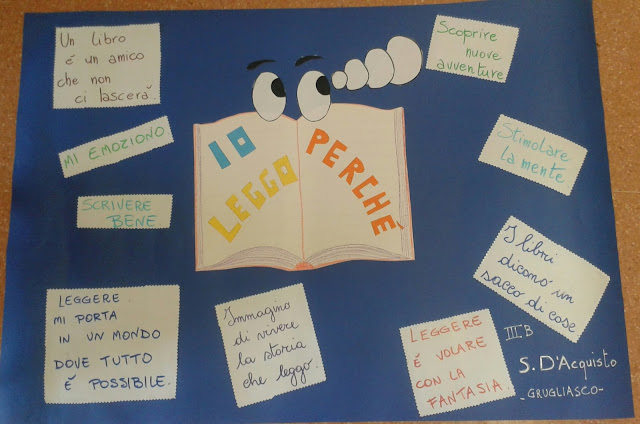 Un libro
é un amico
che non
ci lascerà
MI EMOZIONO
SCRIVERE
BENE
LEGGERE
MI PORTA
IN UN MONDO
DOVE TUTTO
É POSSIBILE.
IO
LEGGO
PERCHÉ
Immagino
di vivere
la storia
che leggo.
Scoprire
nuove
avventure
Stimolare
la mente
I libri
dicono un
sacco di cose
LEGGERE
É VOLARE
CON LA
FANTASIA.
III B
S. D'Acquisto
-GRUGLIASCO-